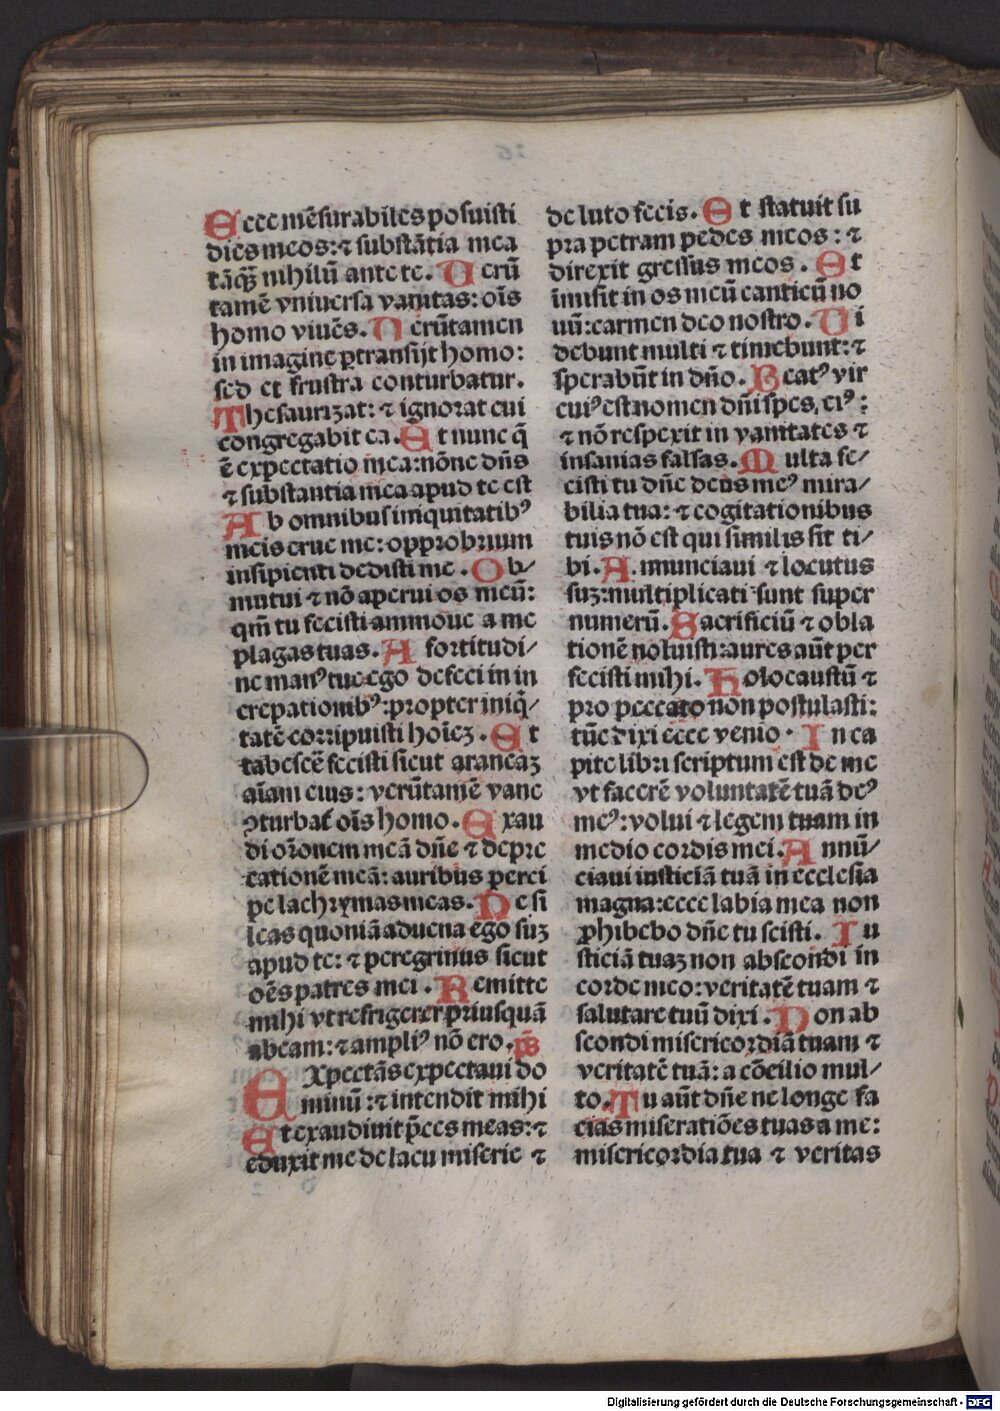 Ecce mēsurabiles posuisti
dies meos: ⁊ substātia mea
tāꝙ̄ nihilū ante te. Uerū
tamē vniuersa vanitas: oīs
homo viuēs. Uerūtamen
in imagine ꝑtransijt homo:
sed et frustra conturbatur.
Thesaurizat: ⁊ ignorat cui
congregabit ea. Et nunc q̄
ē expectatio mea: nōne dn̄s
⁊ substantia mea apud te est
Ab omnibus iniquitatibꝰ
meis erue me: opprobrium
insipienti dedisti me. Ob/
mutui ⁊ nō aperui os meū:
qm̄ tu fecisti ammoue a me
plagas tuas. A fortitudi/
ne manꝰ tue ego defeci in in
crepationibꝰ: propter iniq̄/
tatē corripuisti hoīeꝫ. Et
tabescē fecisti sicut araneaꝫ
aīam eius: verūtamē vane
ꝯturbat̄ oīs homo. Exau
di orōnem meā dn̄e ⁊ depre
cationē meā: auribus perci
pe lachrymas meas. Ne si
leas quoniā aduena ego suꝫ
apud te: ⁊ peregrinus sicut
oēs patres mei. Remitte
mihi vt refrigerer priusquā
abeam: ⁊ ampliꝰ nō ero. p̄s
Expectās expectaui do
minū: ⁊ intendit mihi
Et exaudiuit p̄ces meas: ⁊
eduxit me de lacu miserie ⁊
de luto fecis. Et statuit su
pra petram pedes meos: ⁊
direxit gressus meos. Et
īmisit in os meū canticū no
uū: carmen deo nostro. Ui
debunt multi ⁊ timebunt: ⁊
sperabūt in dn̄o. Beatꝰ vir
cuiꝰ est nomen dn̄i spes, eiꝰ:
⁊ nō respexit in vanitates ⁊
insanias falsas. Multa fe/
cisti tu dn̄e deus meꝰ mira/
bilia tua: ⁊ cogitationibus
tuis nō est qui similis sit ti/
bi. Annunciaui ⁊ locutus
suꝫ: multiplicati sunt super
numerū. Sacrificiū ⁊ obla
tionē noluisti: aures aūt per
fecisti mihi. Holocaustū ⁊
pro peccato non postulasti:
tūc dixi ecce venio. In ca
pite libri scriptum est de me
vt facerē voluntatē tuā deꝰ
meꝰ: volui ⁊ legem tuam in
medio cordis mei. Annū/
ciaui iusticiā tuā in ecclesia
magna: ecce labia mea non
ꝓhibebo dn̄e tu scisti. Iu
sticiā tuaꝫ non abscondi in
corde meo: veritatē tuam ⁊
salutare tuū dixi. Non ab
scondi misericordiā tuam ⁊
veritatē tuā: a cōcilio mul/
to. Tu aūt dn̄e ne longe fa
cias miseratiōes tuas a me:
misericordia tua ⁊ veritas
Digitalisierung gefördert durch die Deutsche Forschungsgemeinschaft - DFG